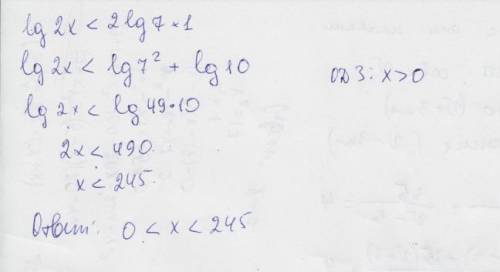 lg 2x < 2lg 7 * 1
lg 2x < lg 7² + lg 10
ОДЗ: x > 0
lg 2x < lg 49 * 10
2x < 490
x < 245
Ответ: 0 < x < 245